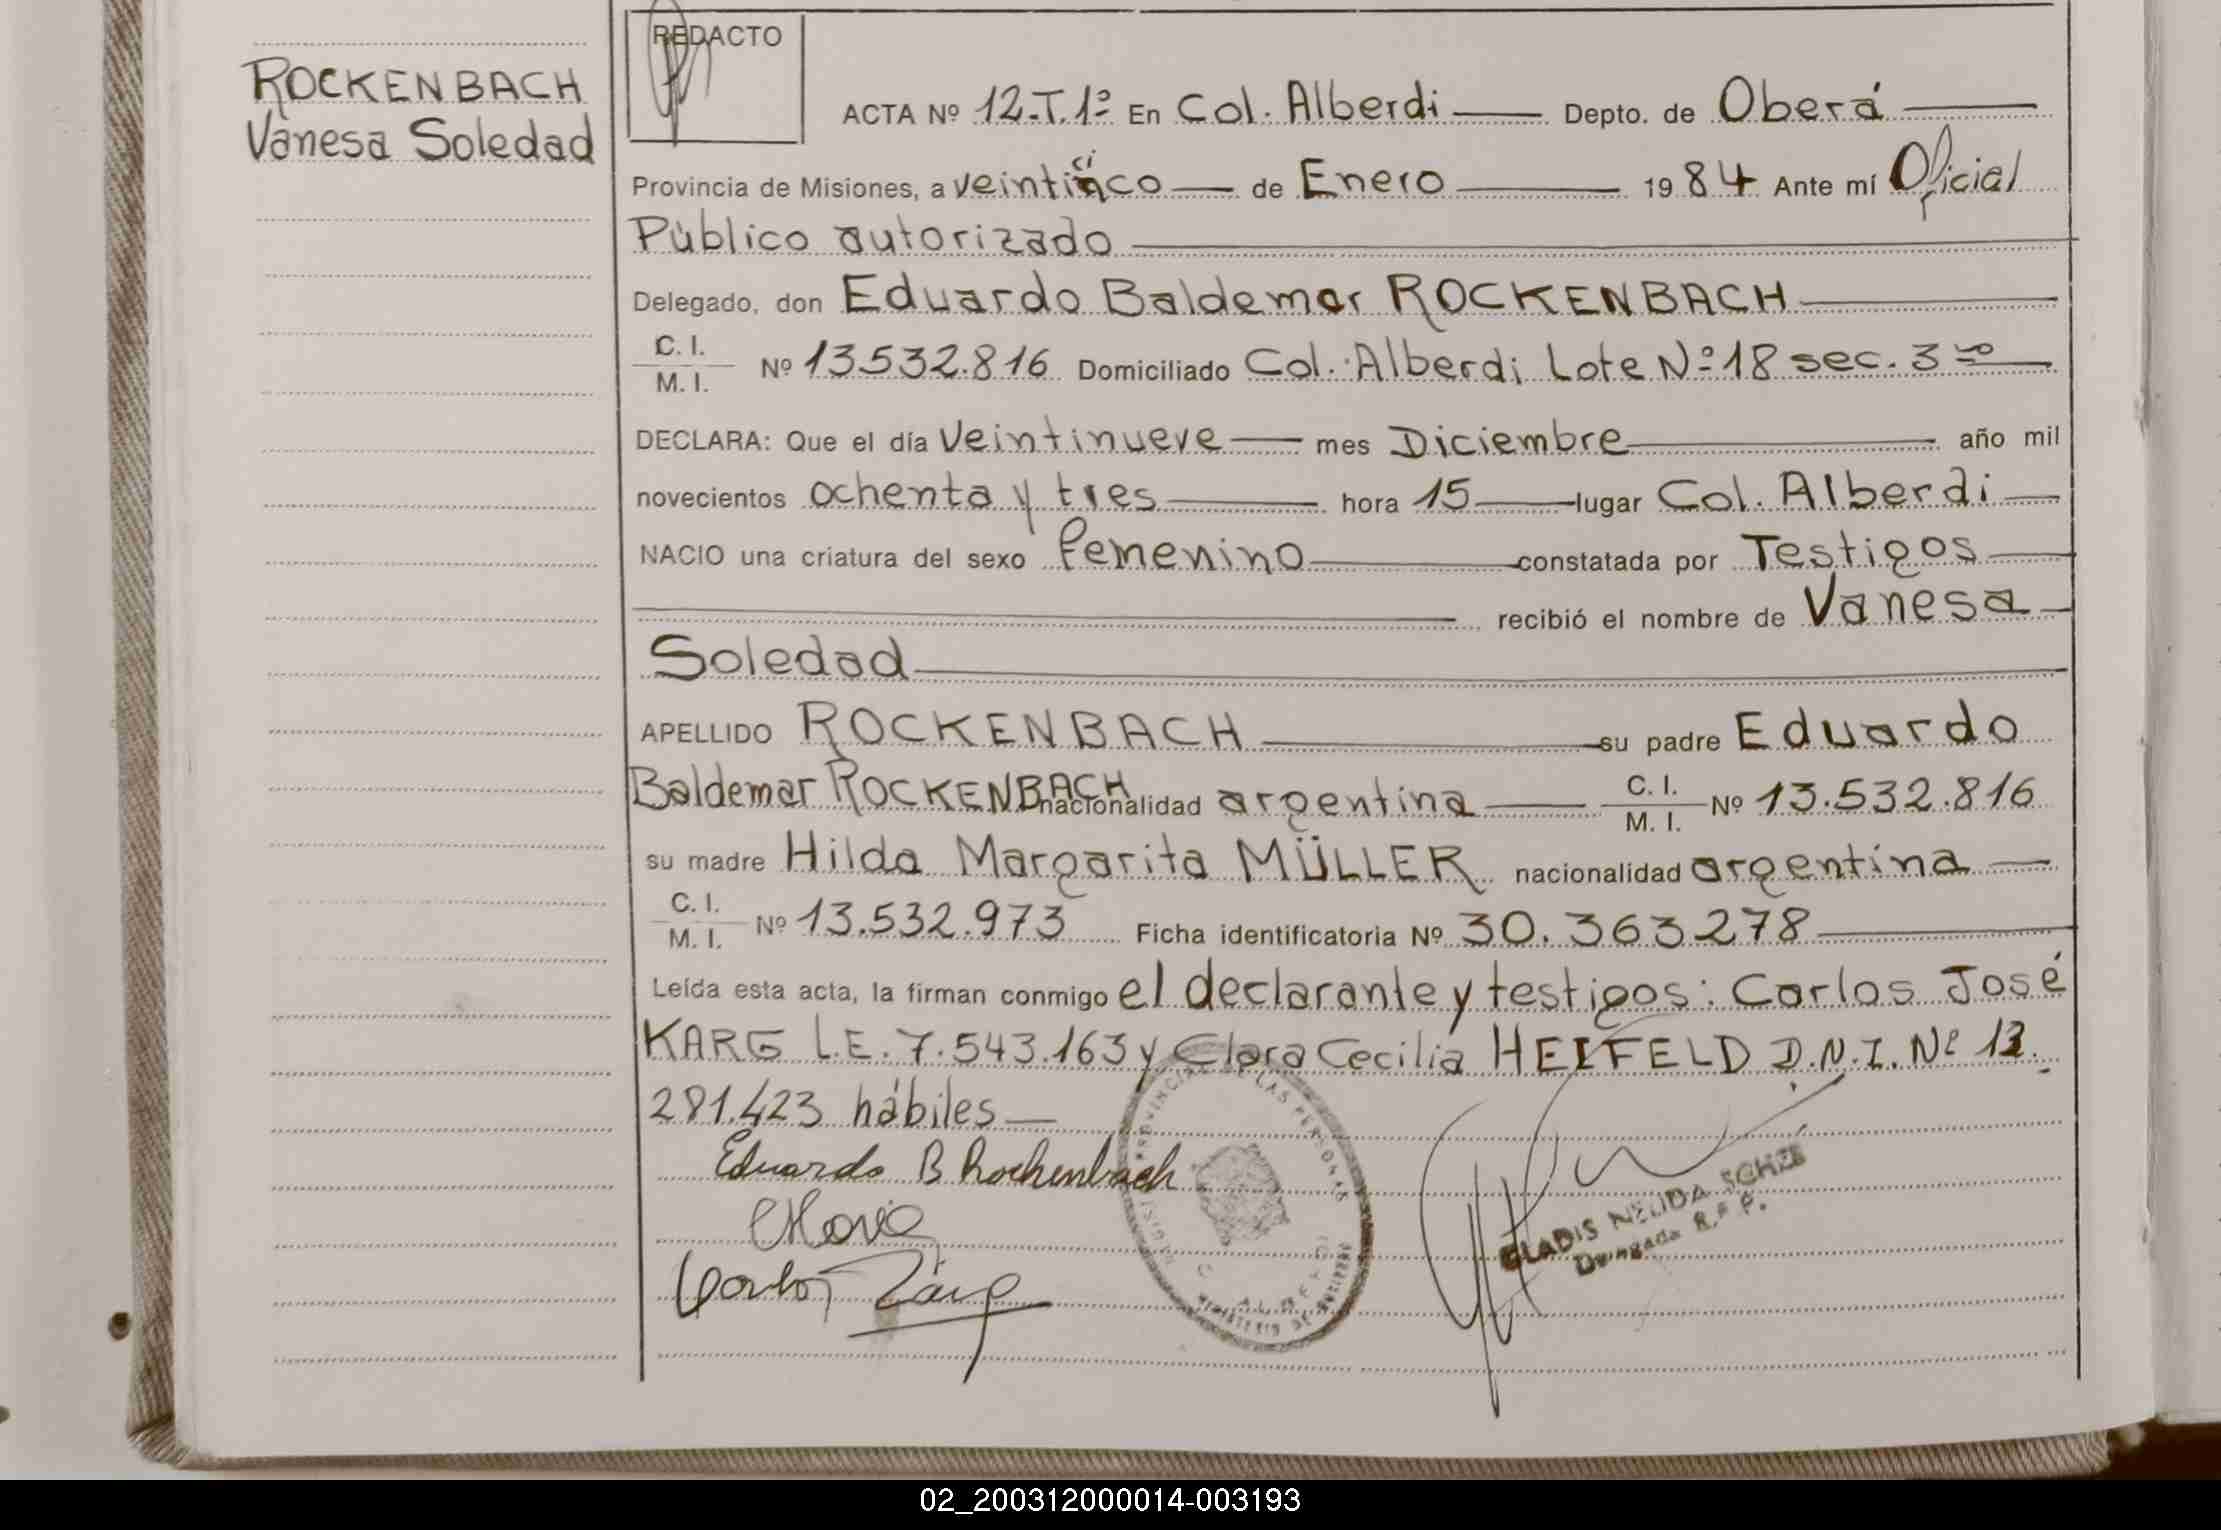 ROCKENBACH
Vanesa Soledad
REDACTO
ACTA Nº 12.T.1º En Col. Alberdi Depto. de Oberá
Provincia de Misiones, a veinticinco de Enero 1984 Ante mí Oficial
Público autorizado
Delegado, don Eduardo Baldemar ROCKENBACH
C. I.
M. I. Nº 13.532.816 Domiciliado Col. Alberdi Lote Nº 18 sec. 3ra
DECLARA: Que el día Veintinueve mes Diciembre año mil
novecientos ochenta y tres hora 15 lugar Col. Alberdi
NACIO una criatura del sexo femenino constatada por Testigos
recibió el nombre de Vanesa
Soledad
APELLIDO ROCKENBACH su padre Eduardo
Baldemar ROCKENBACH nacionalidad argentina C. I. M. I. Nº 13.532.816
su madre Hilda Margarita MÜLLER nacionalidad argentina
C. I.
M. I. Nº 13.532.973 Ficha identificatoria Nº 30.363278
Leída esta acta, la firman conmigo el declarante y testigos: Carlos José
KARG L.E. 7.543.163 y Clara Cecilia HEIFELD D.N.I. Nº 13.
281.423 hábiles
Eduardo B Rockenbach
GLADIS NELIDA
Delegada R.P.P.
02_200312000014-003193